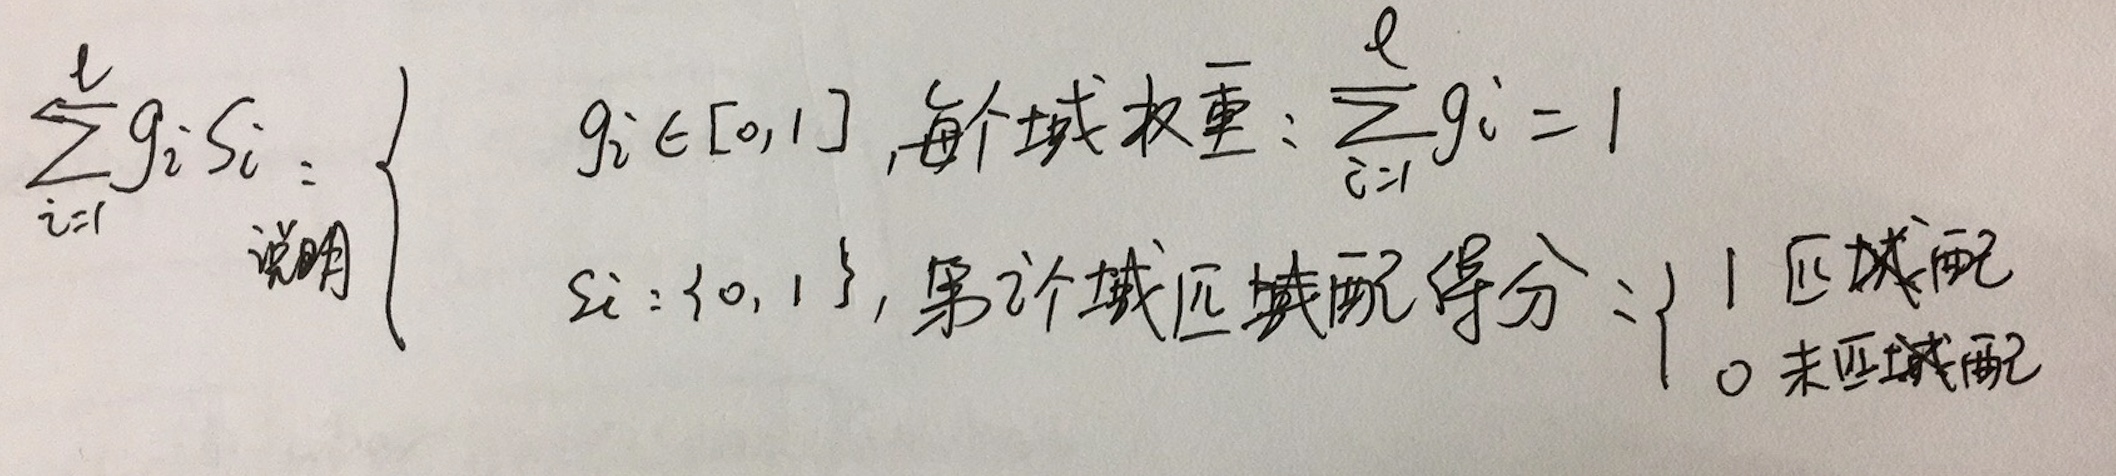 ∑_{i=1}^{l} g_i S_i : 说明 {
g_i ∈ [0,1],每个域权重:∑_{i=1}^{l} g_i = 1
S_i:{0,1},第i个域匹域配得分:{
1 匹域配
0 未匹域配